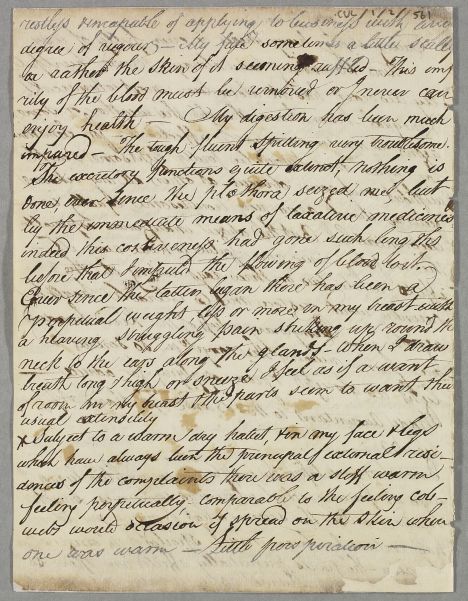 CUL/1/2/561
restless & incapable of applying to business with any
degree of vigour — My face sometimes a little scaly
or rather the skin of it seeming ruffled — This impu
rity of the blood must be removed or I never can
enjoy health — My digestion has been much
impaired — The tough fluent spitting very troublesome.
The excretory functions quite , nothing is
done ever since the plethora seized me, but
by the immediate means of laxative medicines
indeed this costiveness had gone such lengths
before that I the flowing of blood to it.
Ever since the latter again there has been a
perpetual weight less or more in my breast with
a heaving struggling pain striking up round the
neck to the ears along the glands — when I draw
breath long & high or sneeze I feel as if a want
of room in my breast the parts seem to want their
usual extensility
x Subject to a warm dry habit & in my face & legs
which have always been the principal external resi-
dences of the complaints there was a stiff warm
feeling perpetually comparable to the feeling cob-
webs would occasion if spread on the skin when
one was warm — little perspiration —